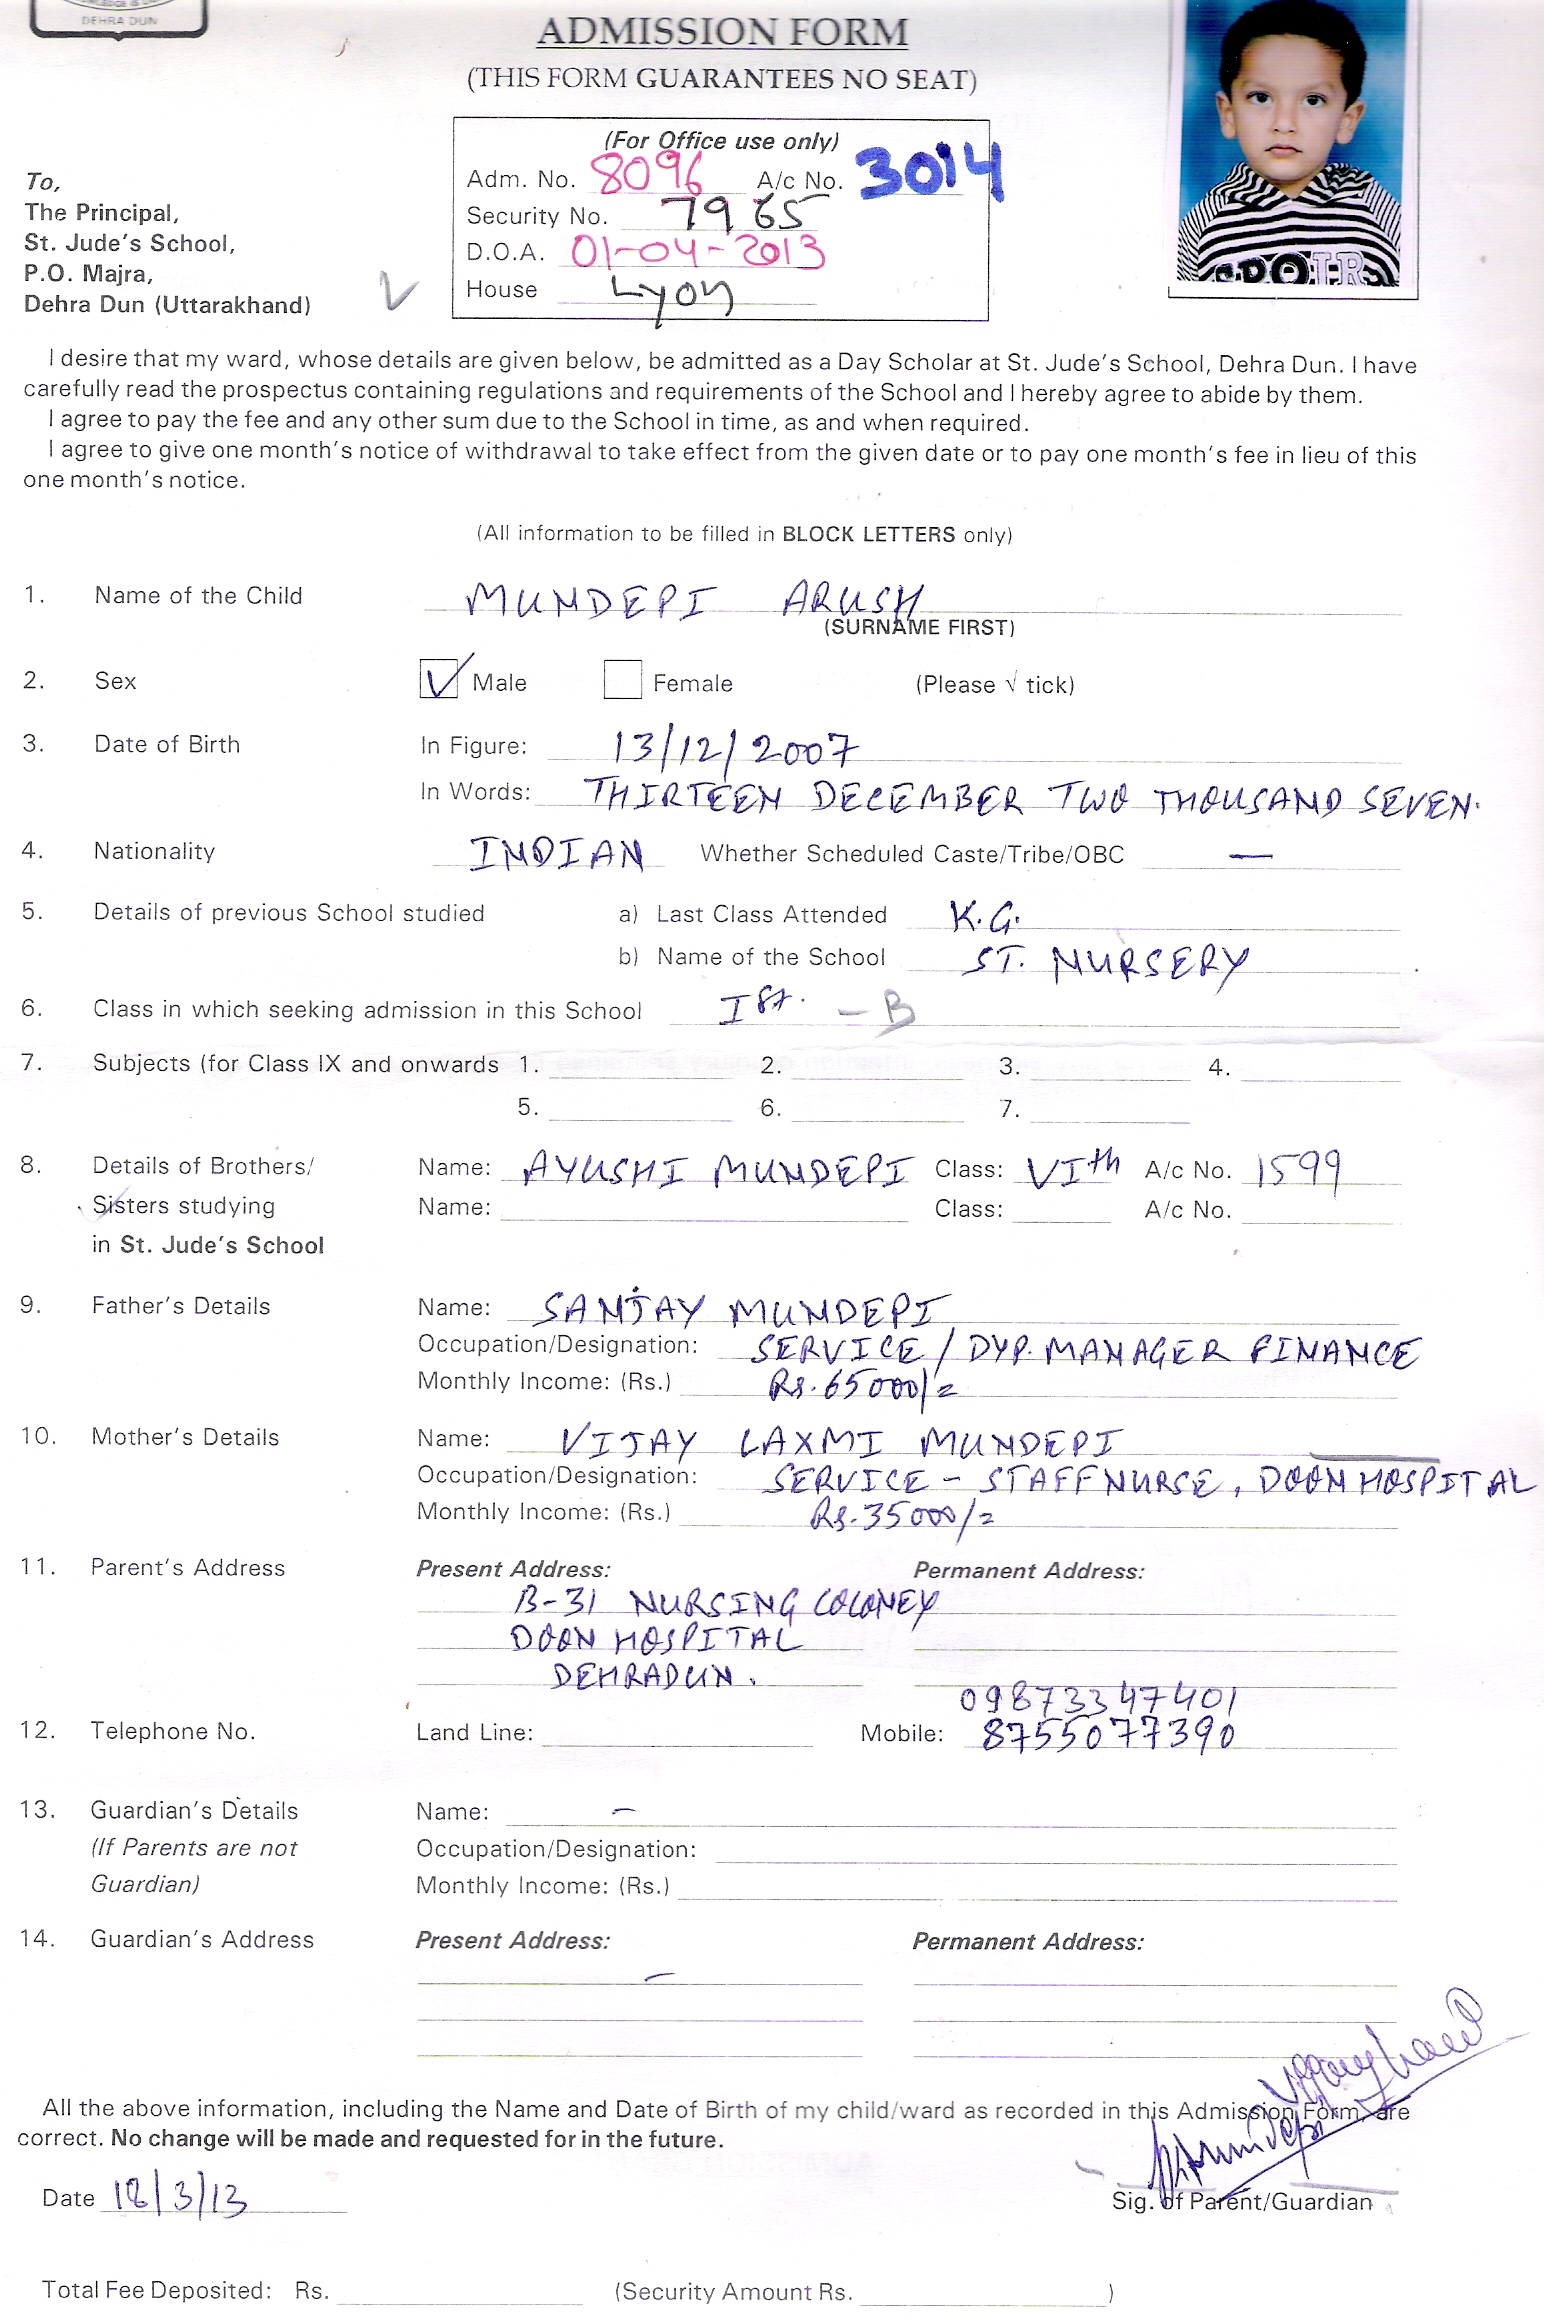 DEHRA DUN
ADMISSION FORM
(THIS FORM GUARANTEES NO SEAT)
(For Office use only)
Adm. No. 8096 A/c No. 3014
Security No. 7965
D.O.A. 01-04-2013
House Lyon
To,
The Principal,
St. Jude's School,
P.O. Majra,
Dehra Dun (Uttarakhand)
I desire that my ward, whose details are given below, be admitted as a Day Scholar at St. Jude's School, Dehra Dun. I have
carefully read the prospectus containing regulations and requirements of the School and I hereby agree to abide by them.
I agree to pay the fee and any other sum due to the School in time, as and when required.
I agree to give one month's notice of withdrawal to take effect from the given date or to pay one month's fee in lieu of this
one month's notice.
(All information to be filled in BLOCK LETTERS only)
1. Name of the Child MUNDEPI ARUSH
(SURNAME FIRST)
2. Sex ✓ Male Female (Please √ tick)
3. Date of Birth In Figure: 13/12/2007
In Words: THIRTEEN DECEMBER TWO THOUSAND SEVEN.
4. Nationality INDIAN Whether Scheduled Caste/Tribe/OBC —
5. Details of previous School studied a) Last Class Attended K.G.
b) Name of the School ST. NURSERY
6. Class in which seeking admission in this School Ist. - B
7. Subjects (for Class IX and onwards 1. 2. 3. 4.
5. 6. 7.
8. Details of Brothers/ Name: AYUSHI MUNDEPI Class: VIth A/c No. 1599
Sisters studying Name: Class: A/c No.
in St. Jude's School
9. Father's Details Name: SANJAY MUNDEPI
Occupation/Designation: SERVICE / DYP. MANAGER FINANCE
Monthly Income: (Rs.) Rs. 65000/=
10. Mother's Details Name: VIJAY LAXMI MUNDEPI
Occupation/Designation: SERVICE - STAFF NURSE, DOON HOSPITAL
Monthly Income: (Rs.) Rs. 35000/=
11. Parent's Address Present Address: Permanent Address:
B-31 NURSING COLONEY
DOON HOSPITAL
DEHRADUN.
09873347401
12. Telephone No. Land Line: Mobile: 8755077390
13. Guardian's Details Name: –
(If Parents are not Occupation/Designation:
Guardian) Monthly Income: (Rs.)
14. Guardian's Address Present Address: Permanent Address:
–
All the above information, including the Name and Date of Birth of my child/ward as recorded in this Admission Form, are
correct. No change will be made and requested for in the future.
Date 18/3/13 Sig. of Parent/Guardian
Total Fee Deposited: Rs. (Security Amount Rs. )